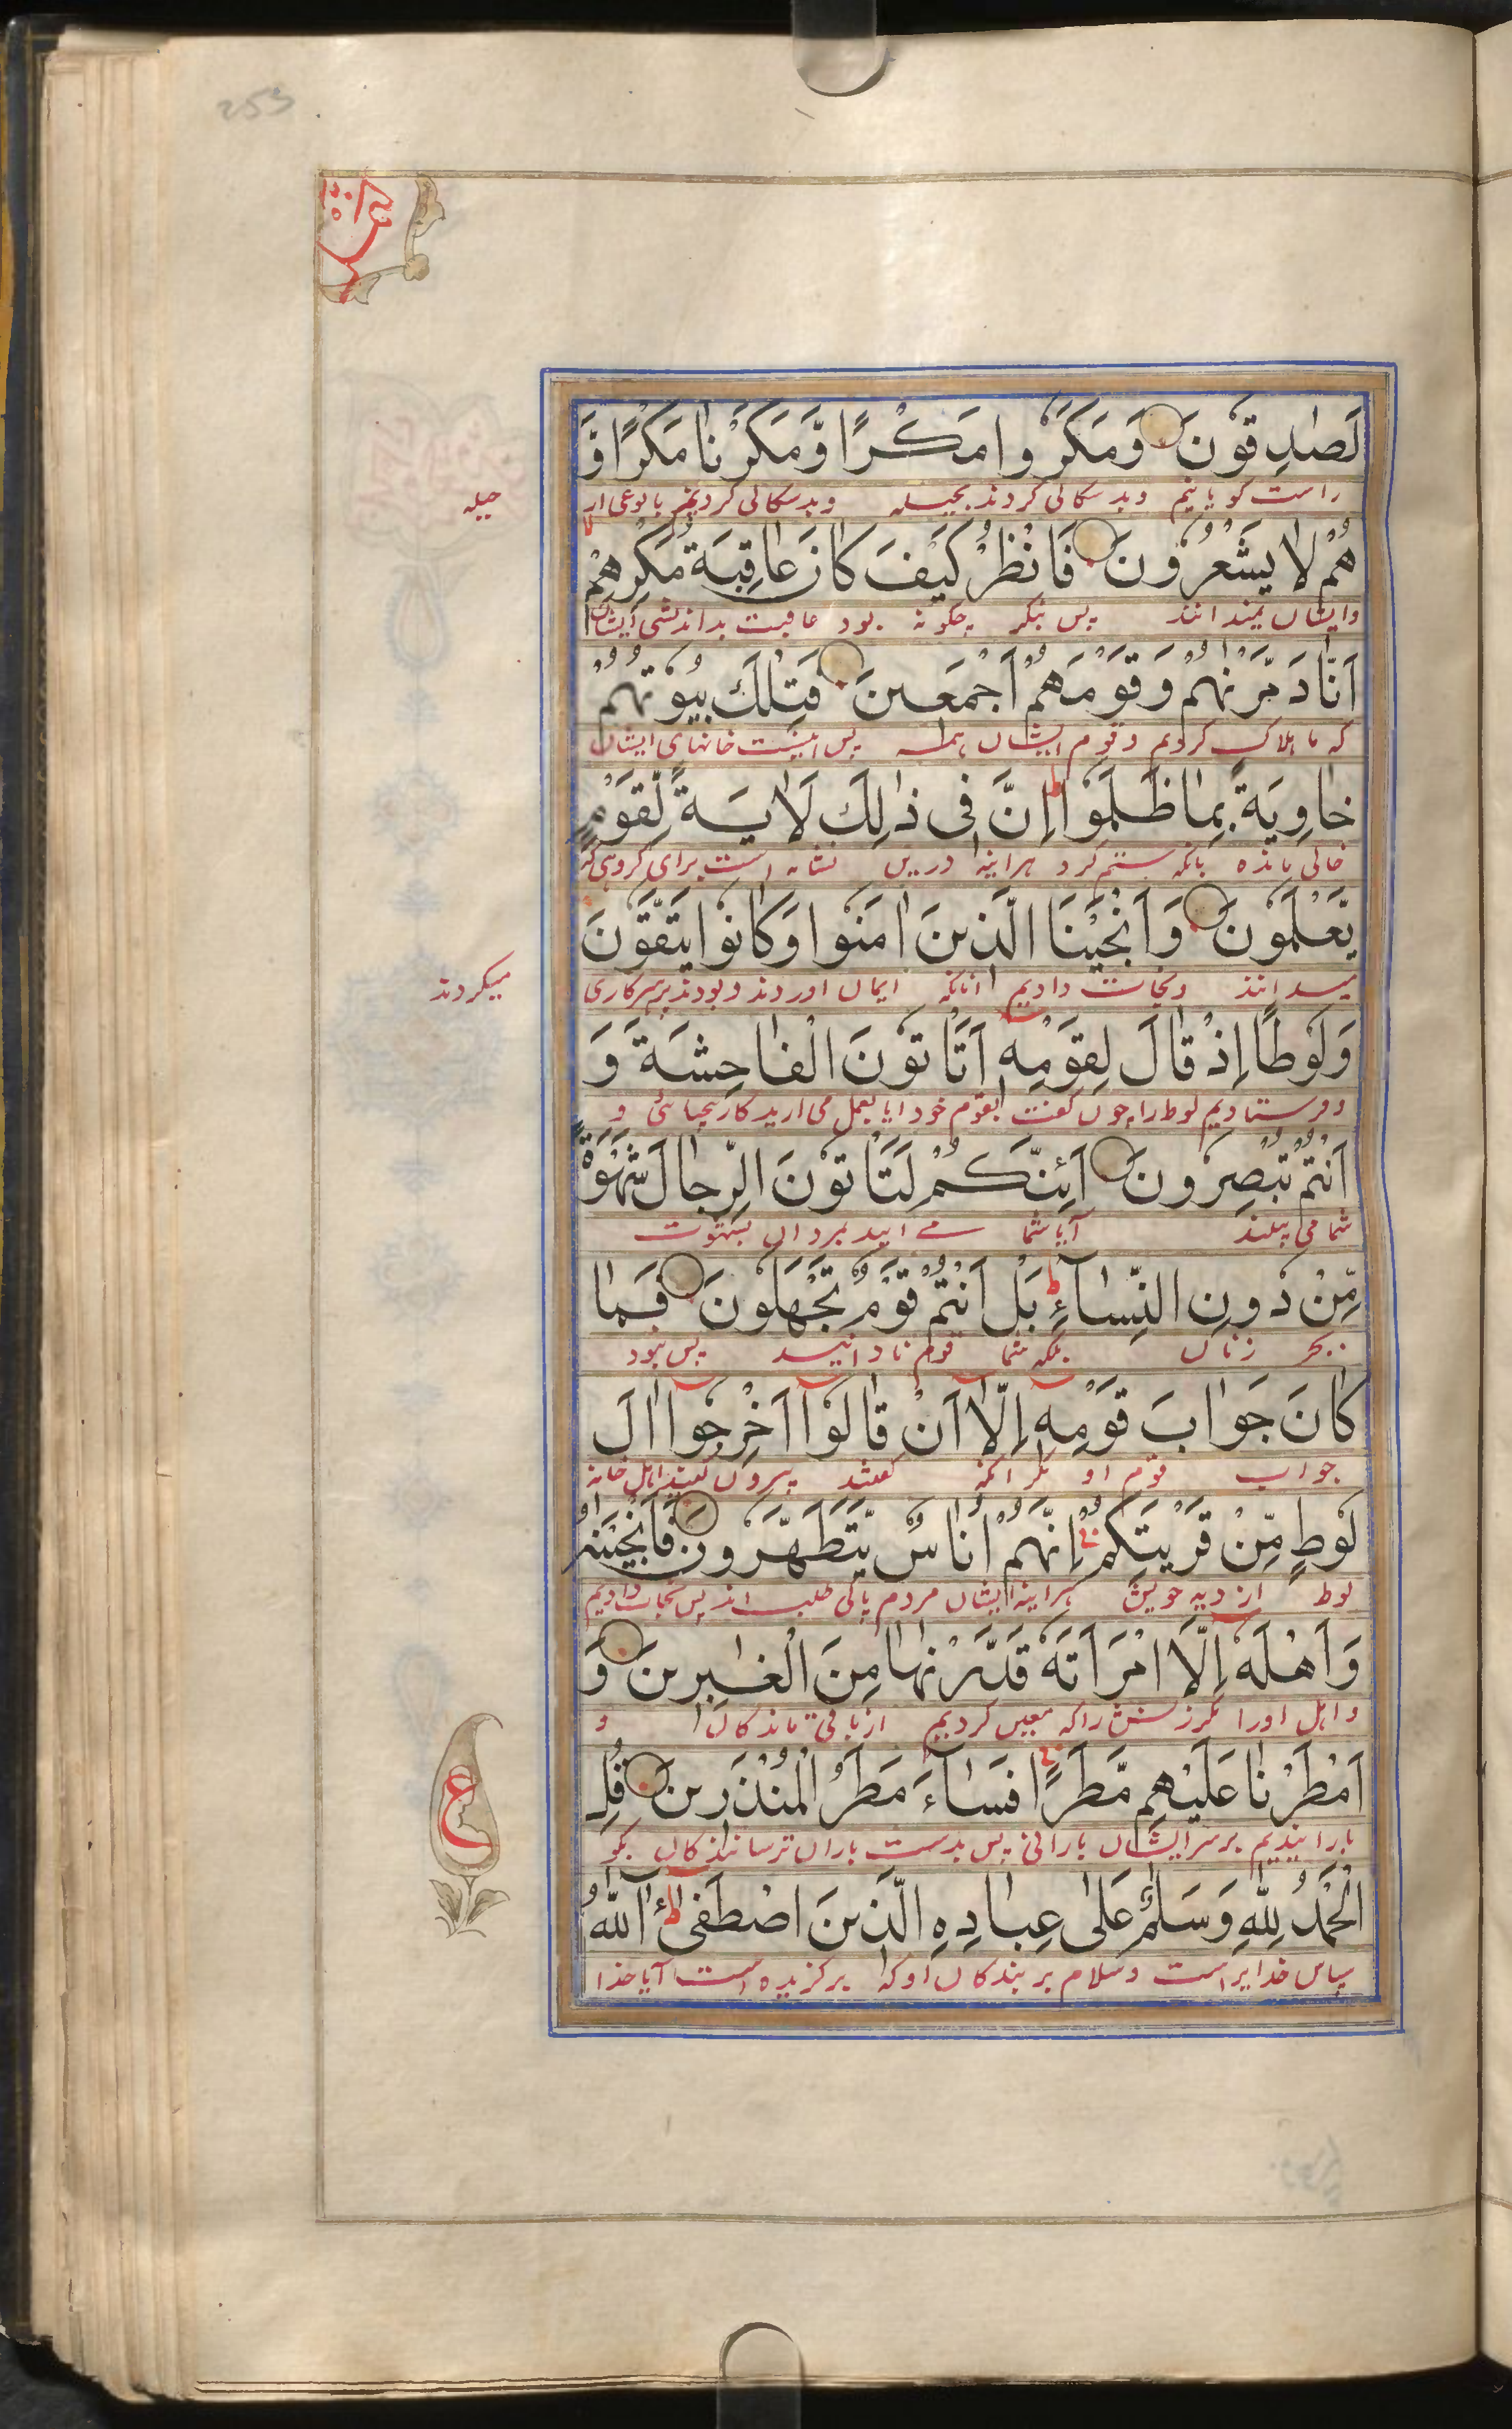 253
لَصٰدِقُوْنَ وَمَكَرُوْا مَكْرًا وَّمَكَرْنَا مَكْرًا وَّ
راست کویانیم وبد سکالی کردند بحیله وبد سکالی کردیم
حیله
هُمْ لَا يَشْعُرُوْنَ فَانْظُرْ كَيْفَ كَانَ عَاقِبَةُ مَكْرِهِمْ
وایشان نمیدانند پس بنکر چکونه بود عاقبت بداندیشی ایشان
اَنَّا دَمَّرْنٰهُمْ وَقَوْمَهُمْ اَجْمَعِيْنَ فَتِلْكَ بُيُوْتُهُمْ
که ما هلاک کردیم وقوم ایشان همه پس اینست خانهای ایشان
خَاوِيَةً بِمَا ظَلَمُوْا ط اِنَّ فِىْ ذٰلِكَ لَاٰيَةً لِّقَوْمٍ
خالی مانده بانکه ستم کرد هراینه درین نشانه است برای کروهی که
يَّعْلَمُوْنَ وَاَنْجَيْنَا الَّذِيْنَ اٰمَنُوْا وَكَانُوْا يَتَّقُوْنَ
میدانند ونجات دادیم انانکه ایمان اوردند وبودند پرهیزکاری
میکردند
وَلُوْطًا اِذْ قَالَ لِقَوْمِهٖٓ اَتَاْتُوْنَ الْفَاحِشَةَ وَ
وفرستادیم لوط را چون کفت بقوم خود ایا بعمل می ارید کار بیحیائی و
اَنْتُمْ تُبْصِرُوْنَ اَئِنَّكُمْ لَتَاْتُوْنَ الرِّجَالَ شَهْوَةً
شما می بینند آیا شما مے ایید بمردان بشهوت
مِّنْ دُوْنِ النِّسَآءِ ط بَلْ اَنْتُمْ قَوْمٌ تَجْهَلُوْنَ فَمَا
بجز زنان بلکه شما قوم نادانید پس نبود
كَانَ جَوَابَ قَوْمِهٖٓ اِلَّآ اَنْ قَالُوْٓا اَخْرِجُوْٓا اٰلَ
جواب قوم او مکر انکه کفتند بیرون کنید اهل خانه
لُوْطٍ مِّنْ قَرْيَتِكُمْ اِنَّهُمْ اُنَاسٌ يَّتَطَهَّرُوْنَ فَاَنْجَيْنٰهُ
لوط از دیه خویش هراینه ایشان مردم پاکی طلب اند پس نجات دادیم
وَاَهْلَهٗٓ اِلَّا امْرَاَتَهٗ قَدَّرْنٰهَا مِنَ الْغٰبِرِيْنَ وَ
و اهل اورا مکر زنش را که معین کردیم از باقی ماندکان و
اَمْطَرْنَا عَلَيْهِمْ مَّطَرًا فَسَآءَ مَطَرُ الْمُنْذَرِيْنَ قُلِ
بارانیدیم بر سر ایشان بارانی پس بدست باران ترسانندکان بکو
ع
الْحَمْدُ لِلّٰهِ وَسَلٰمٌ عَلٰى عِبَادِهِ الَّذِيْنَ اصْطَفٰى ط آللّٰهُ
سپاس خدایراست وسلام بر بندکان او که برکزیده است آیا خدا